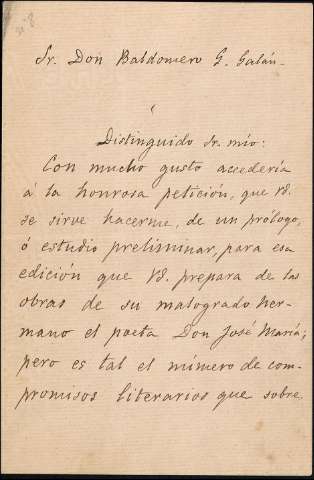 Sr. Don Baldomero G. Galán.
Distinguido Sr. mío:
Con mucho gusto accedería
á la honrosa petición, que Vd.
se sirve hacerme, de un prólogo,
ó estudio preliminar, para esa
edición que Vd. prepara de las
obras de su malogrado her-
mano el poeta Don José María;
pero es tal el número de com-
promisos literarios que sobre